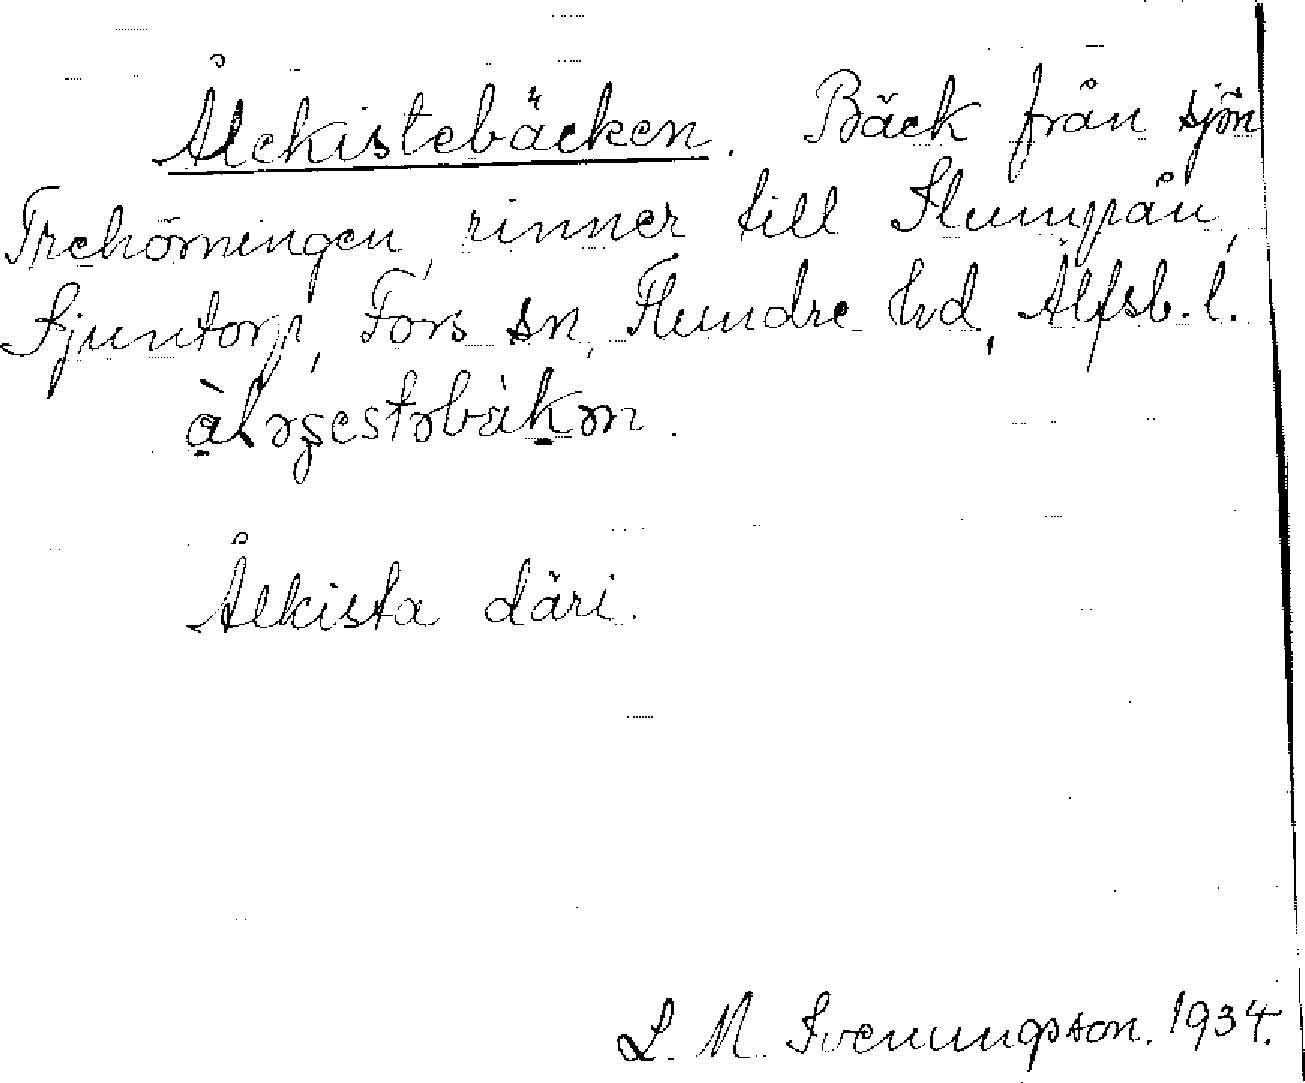 Ålekistebäcken. Bäck från sjön
Trehörningen, rinner till Slumpån,
Sjuntorp, Fors sn, Flundre hd, Älfsb. l.
Ålkista däri.
L. M. Svenungsson. 1934.